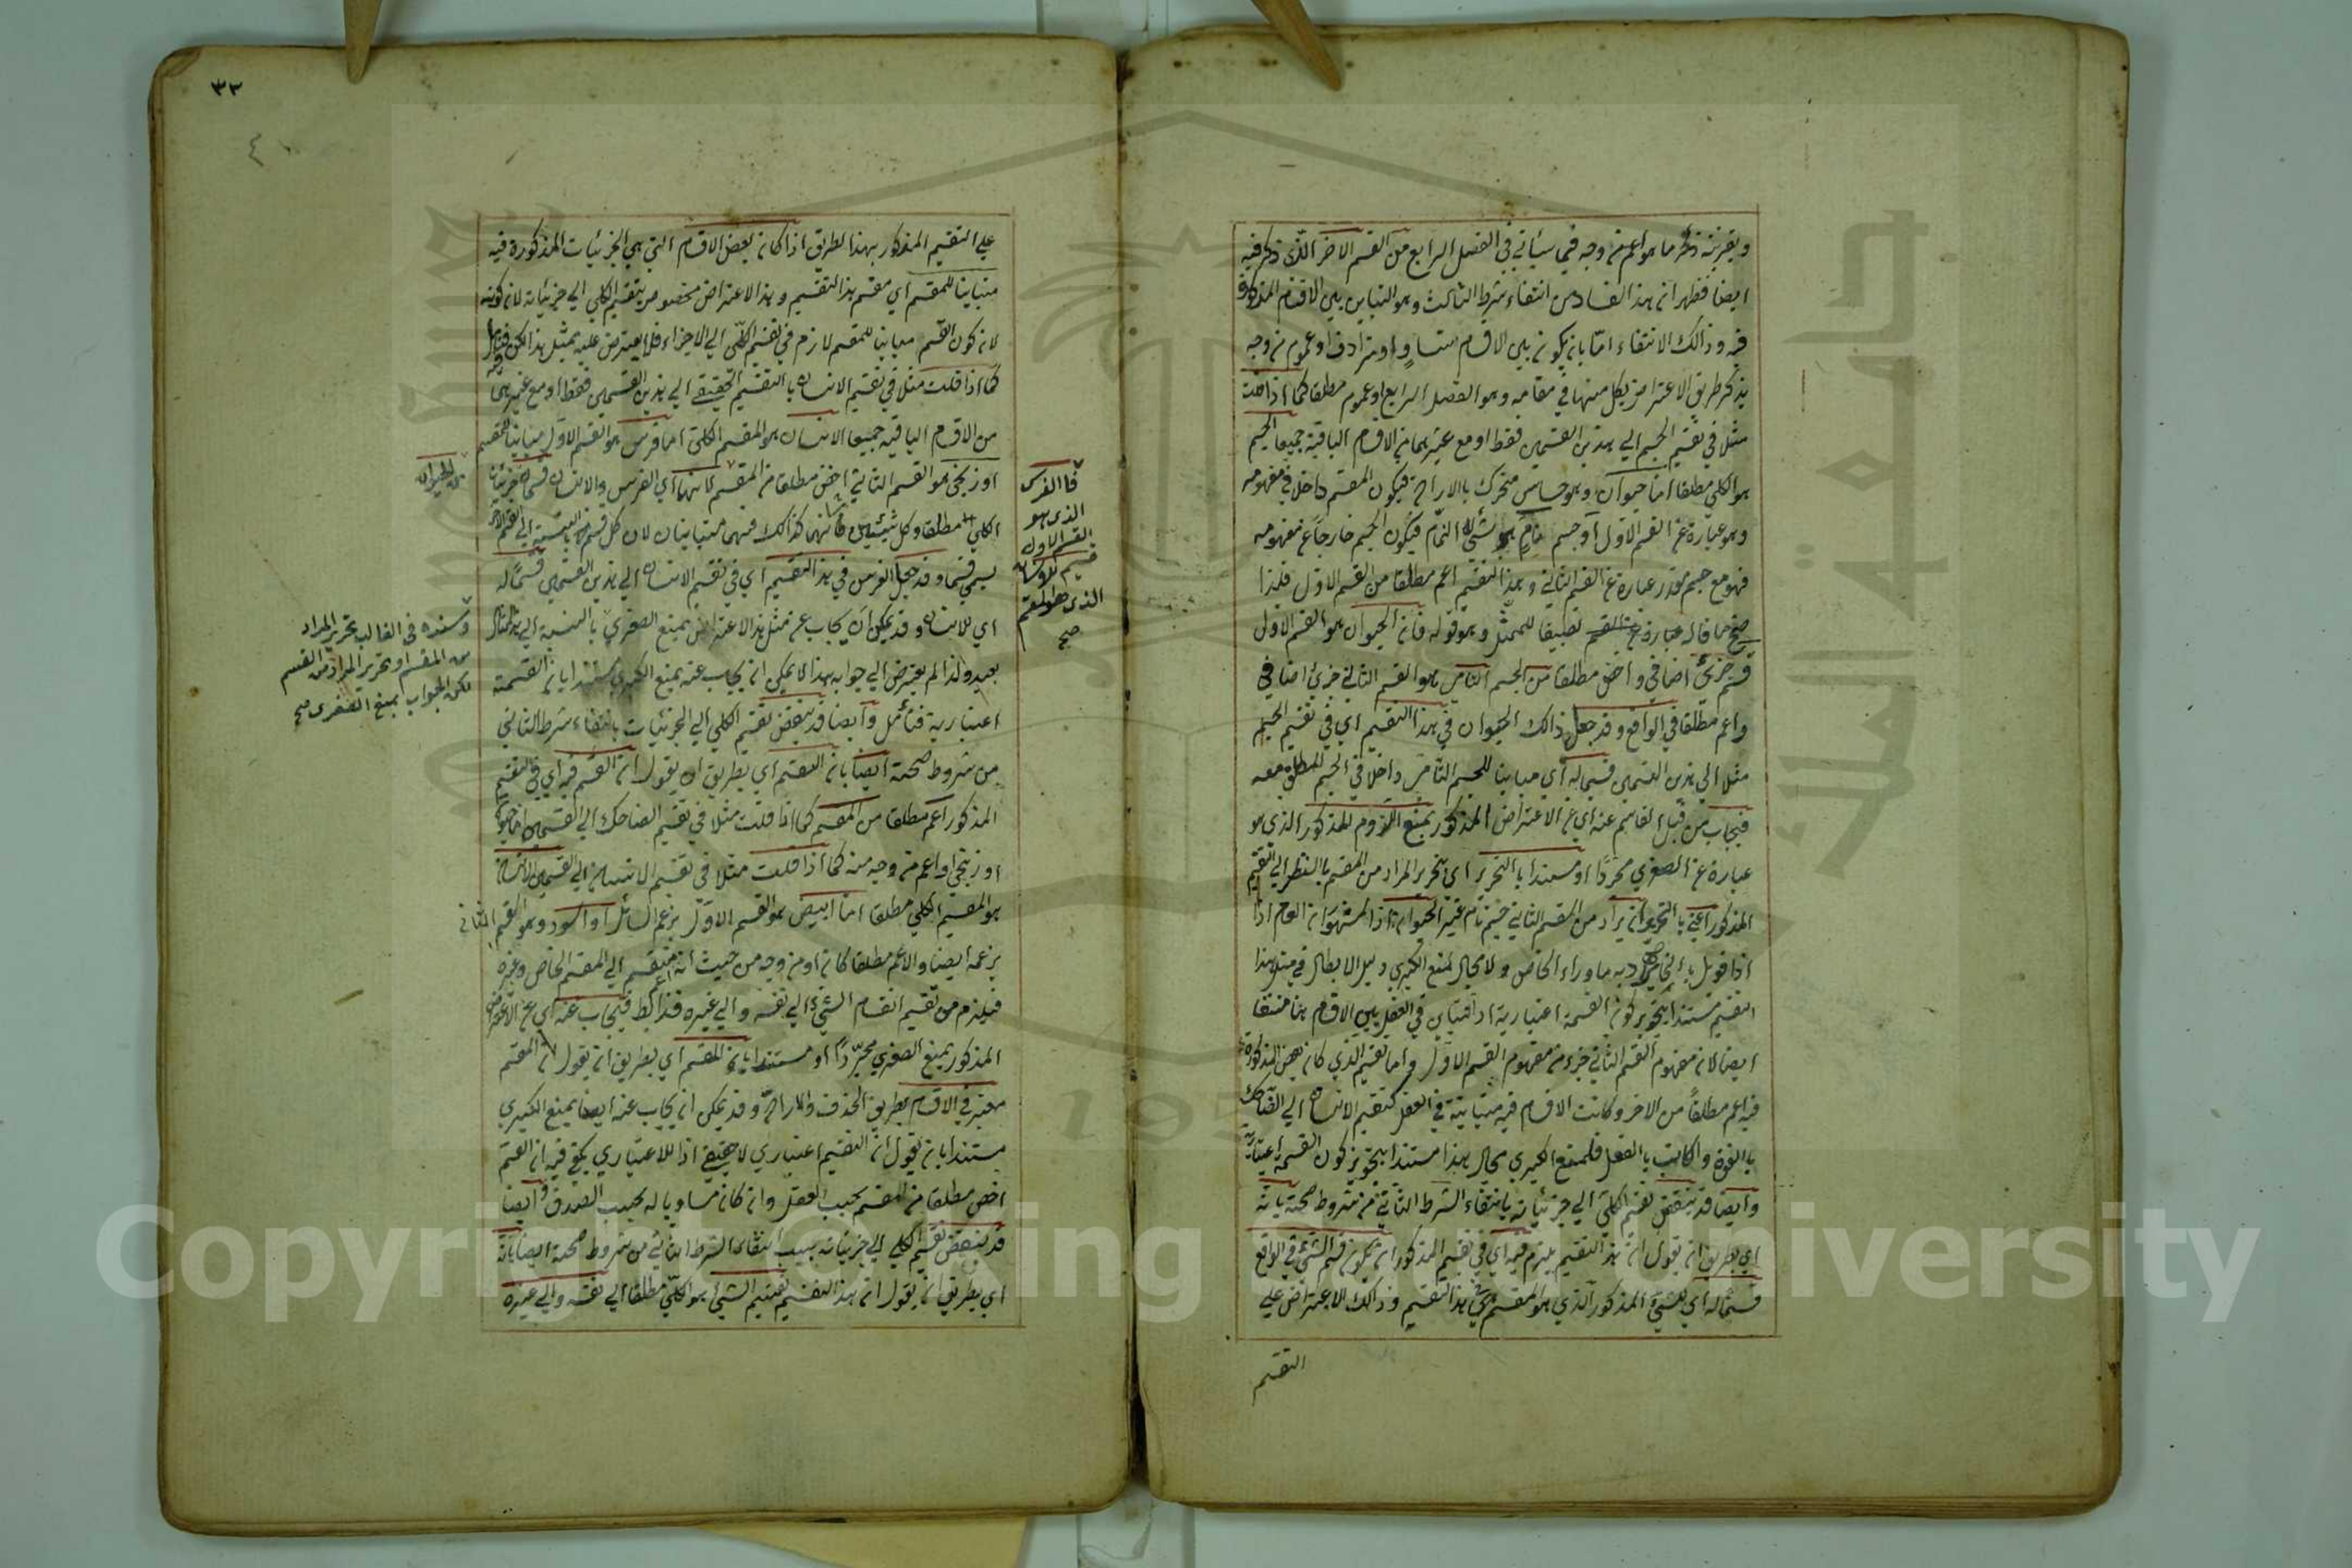 وبقرينة ذكر ما هو اعم من وجه فيما سيأتي في الفصل الرابع من القسم الاخر الذي ذكر فيه
ايضا فظهر ان هذا الفساد من انتفاء شرط الثالث وهو التباين بين الاقسام المذكورة
فيه وذالك الانتفاء امّا بان يكون بين الاقسام تساوٍ او ترادف او عموم من وجه
يذكر طريق الاعتراض بكل منها في مقامه وهو الفصل الرابع او عموم مطلقا كما اذا قلت
مثلا في تقسيم الجسم الى هذين القسمين فقط او مع غيرهما من الاقسام الباقية جميعا الجسم
هو الكلي مطلقا امّا حيوان وهو حساس متحرك بالارادة فيكون المقسم داخلا في مفهومه
وهو عبارة عن القسم الاول او جسم نامٍ هو شئ له النمآء فيكون الجسم خارجاً عن مفهومه
فهو مع جسم مقدر عبارة عن القسم الثاني وهذا التقسيم اعم مطلقا من القسم الاول فلذا
صح ما قاله عبارة عن القسم تطبيقا للممثل وهو قوله فان الحيوان هو القسم الاول
قسم جزئ اضافي واخص مطلقا من الجسم النامى هو القسم الثاني جزئ اضافي
واعم مطلقا في الواقع وقد جعل ذالك الحيوان في هذا التقسيم اي في تقسيم الجسم
مثلا الى هذين القسمين قسيما له اي مباينا للجسم النامى داخلا في الجسم المطلق معه
فيجاب من قبل القاسم عنه اي عن الاعتراض المذكور بمنع اللزوم المذكور الذي هو
عبارة عن الصغري مجردًا او مستندا بالتحرير اي بتحرير المراد من المقسم بالنظر الى التقسيم
المذكور اعني بالتحرير ان يراد من القسم الثاني جسم نام غير الحيوان اذ المشهور ان العام اذا
اذا قوبل بالخاص يراد به ما وراء الخاص ولا مجال لمنع الكبري دليل الابطال في مثل هذا
التقسيم مستندا بتجويز كون القسمة اعتبارية اذ التباين في العقل بين الاقسام هنا منتفا
ايضا لان مفهوم القسم الثاني جزء من مفهوم القسم الاول واما تقسيم الذي كان بعض المذكورة
فيه اعم مطلقاً من الاخر وكانت الاقسام فيه متباينة في العقل كتقسيم الانسان الى الضاحك
بالقوة والكاتب بالفعل فلمنع الكبري مجال بهذا مستندا بتجويز كون القسمة اعتبارية
وايضا قد ينتقض تقسيم الكلي الى جزئياته بانتفاء الشرط الثاني من شروط صحته بانه
اي بطريق ان يقول ان هذا التقسيم يلزم فيه اي في تقسيم المذكور ان يكون قسم الشئ في الواقع
قسيما له اي للشئ المذكور الذي هو المقسم في هذا التقسيم وذالك الاعتراض على
التقسيم
٣٢
٤
على التقسيم المذكور بهذا الطريق اذا كان بعض الاقسام التي هي الجزئيات المذكورة فيه
متباينا للمقسم اي مقسم هذا التقسيم وهذا الاعتراض مخصوص بتقسيم الكلي الى جزئياته لان كونه
لان كون القسم مباينا للمقسم لازم في تقسيم الكلّى الى الاجزاء فلا يعترض عليه بمثل هذا لكن فتأمل فيه
كما اذا قلت مثلا في تقسيم الانسان بالتقسيم الحقيقي الى هذين القسمين فقط او مع غيرهما
من الاقسام الباقية جميعا الانسان هو المقسم الكلي اما فرس هو القسم الاول مباينا للمقسم
او زنجي هو القسم الثاني اخص مطلقا من المقسم لانهما اي الفرس والانسان قسما من جزئيات
الكلي مطلقا وكل شيئين شانهما كذالك فهما متباينان لان كل قسم بالنسبة الى القسم الاخر
يسمي قسيما وقد جعل الفرس في هذا التقسيم اي في تقسيم الانسان الى هذين القسمين قسمًا له
اي للانسان وقد يمكن ان يجاب عن مثل هذا الاعتراض بمنع الصغري بالنسبة الى هذا المثال
بعيد ولذا لم يعترض الى جوابه بهذا لا يمكن ان يجاب عنه بمنع الكبري مستندا بان القسمة
اعتبارية فتأمل وايضا قد ينتقض تقسيم الكلي الى الجزئيات بانتفاء شرط الثاني
من شروط صحته ايضا بان القسم اي بطريق ان يقول ان القسم فيه اي في التقسيم
المذكور اعم مطلقا من المقسم كما اذا قلت مثلا في تقسيم الضاحك الى القسمين اما حيوان
او زنجي او اعم من وجه منه كما اذا قلت مثلا في تقسيم الانسان الى القسمين الانسان
هو المقسم الكلي مطلقا امّا ابيض هو القسم الاول بزعم السائل او اسود وهو القسم الثاني
بزعمه ايضا والاعم مطلقا كان او من وجه من حيث انه اعم منقسم الى المقسم الخاص وغيره
فيلزم من تقسيم انقسام الشئ الى نفسه والى غيره فذا باطل فيجاب عنه اي عن الاعتراض
المذكور بمنع الصغري مجرّدًا او مستندا بان المقسم اي بطريق ان يقول لان المقسم
معتبر في الاقسام بطريق الحذف والارادة وقد يمكن ان يجاب عنه ايضا بمنع الكبري
مستندا بان يقول ان التقسيم اعتباري لا حقيقي اذ للاعتباري يكفي فيه ان القسم
اخص مطلقا من المقسم بحسب العقل وان كان مساويا له بحسب الصدق وايضا
قد ينتقض تقسيم الكلي الى جزيئاته بسبب انتفاء الشرط الثاني من شروط صحته ايضا بانه
اي بطريق ان يقول ان هذا التقسيم تقسيم الشئ هو الكلّي مطلقا الى نفسه والى غيره
فا الفرس
الذى هو
القسم الاول
قسيم للانسان
الذى هو المقسم
صح
هى الحيوان
وسنده فى الغالب تحرير المراد
من المقسم او تحرير المراد من القسم
لكن الجواب بمنع الصغرى صح
Copyright © King Saud University
1957